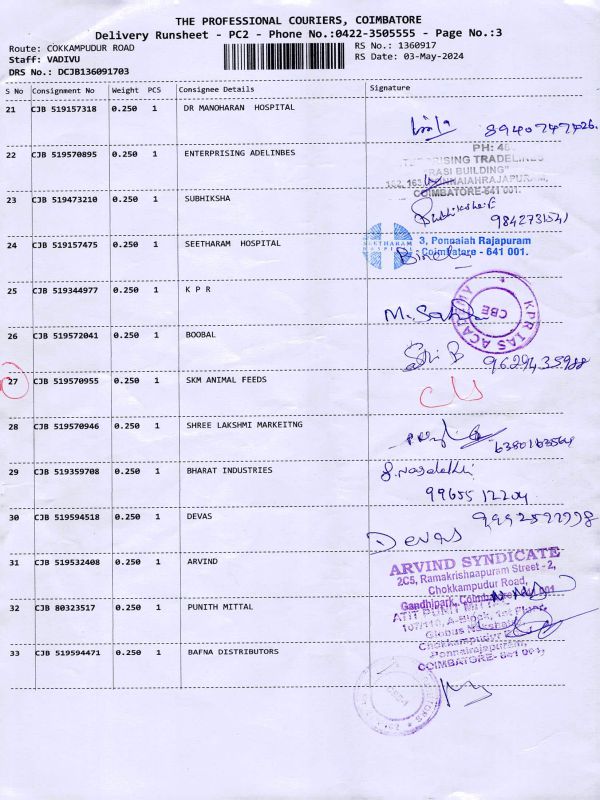 THE PROFESSIONAL COURIERS, COIMBATORE
Delivery Runsheet - PC2 - Phone No.:0422-3505555 - Page No.:3
Route: COKKAMPUDUR ROAD
RS No.: 1360917
Staff: VADIVU
RS Date: 03-May-2024
DRS No.: DCJB136091703
S No Consignment No Weight PCS Consignee Details Signature
21 CJB 519157318 0.250 1 DR MANOHARAN HOSPITAL
8940747426.
22 CJB 519570895 0.250 1 ENTERPRISING ADELINBES
PH: 
RISING TRADELINES
RASI BUILDING"
PONNAIAHRAJAPURAM,
COIMBATORE-641 001.
23 CJB 519473210 0.250 1 SUBHIKSHA
9842731541
24 CJB 519157475 0.250 1 SEETHARAM HOSPITAL
SEETHARAM
HOSPITAL
3, Ponnaiah Rajapuram
Coimbatore - 641 001.
25 CJB 519344977 0.250 1 K P R
KPR IAS ACADEMY
CBE
26 CJB 519572041 0.250 1 BOOBAL
Sri B
9629435988
27 CJB 519570955 0.250 1 SKM ANIMAL FEEDS
28 CJB 519570946 0.250 1 SHREE LAKSHMI MARKEITNG
6380163564
29 CJB 519359708 0.250 1 BHARAT INDUSTRIES
9965512204
30 CJB 519594518 0.250 1 DEVAS
9992592998
Devas
31 CJB 519532408 0.250 1 ARVIND
ARVIND SYNDICATE
2C5, Ramakrishnapuram Street - 2,
Chokkampudur Road,
Gandhipark, Coimbatore-641 001
32 CJB 80323517 0.250 1 PUNITH MITTAL
107/110, A-Block, 1st Floor,
Globus
Chokkampudur
Ponnairajapuram,
COIMBATORE- 641 001,
33 CJB 519594471 0.250 1 BAFNA DISTRIBUTORS